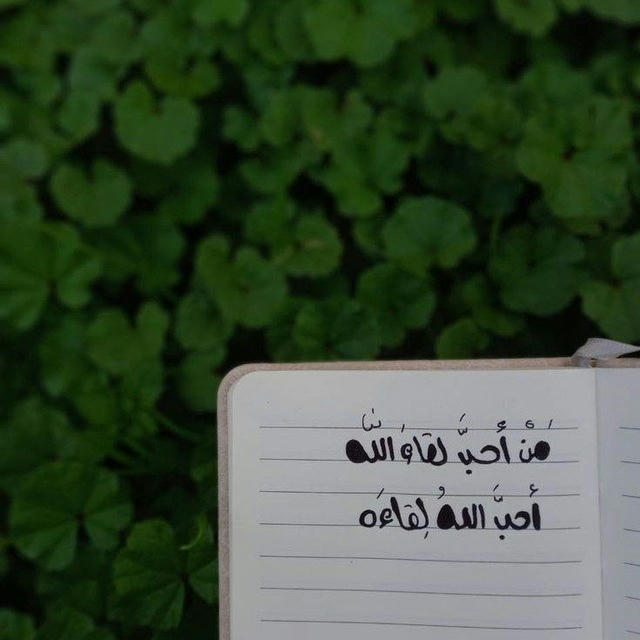 مَنْ أَحبَّ لقاءَ الله
أحبَّ اللهُ لِقاءَه